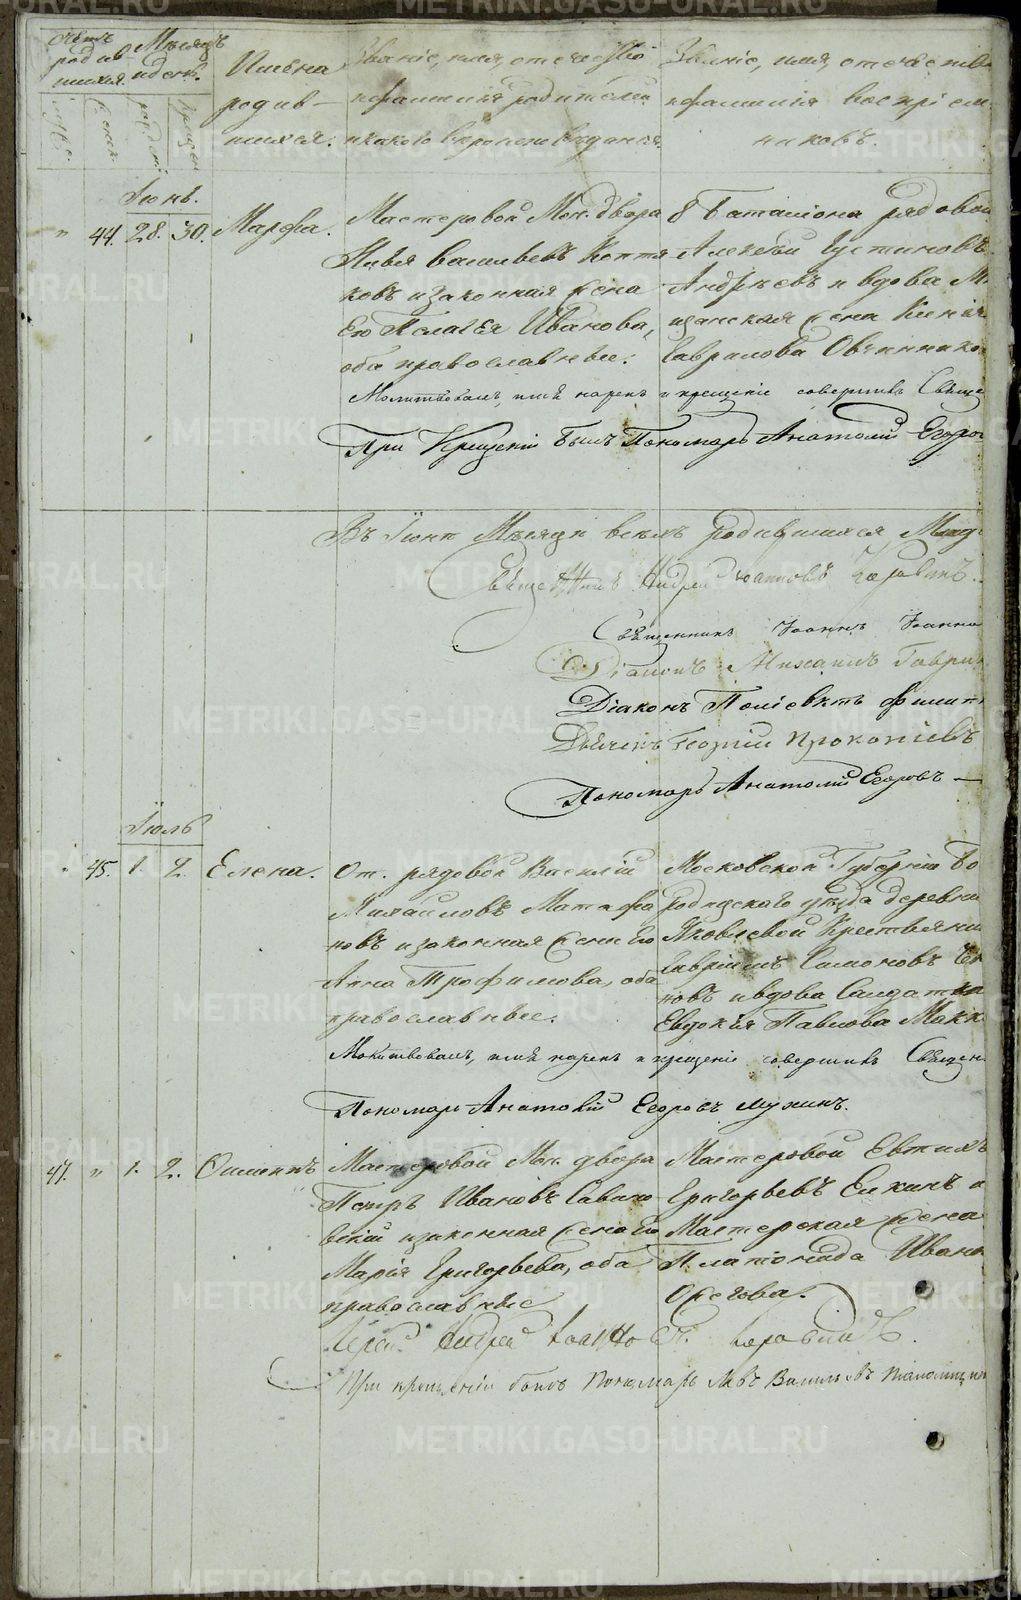 Счетъ родив-
шихся.
Мѣсяцъ
и день.
Имена
родив-
шихся.
Званіе, имя, отчество
и фамилія родителей
и какого вѣроисповѣданія.
Званіе, имя, отчество
и фамилія воспріем-
никовъ.
Іюнь.
" 44. 28. 30. Марфа.
Мастеровой Мон. двора
Илья Васильевъ
ковъ и законная жена
Его Пелагея Иванова,
оба православные.
8 баталіона рядовой
Алексѣй Іустиновъ
Андреевъ и вдова М
щанская жена
Гаврилова Овчиннико
Молитвовалъ, имя нарекъ и крещеніе совершилъ Свяще
При Крещеніи былъ Пономарь Анатолій Егоров
Въ Іюнѣ Мѣсяцѣ всѣхъ родившихся
Священникъ Андрей Іоанновъ
Священникъ Іоаннъ Іоанно
Діаконъ Михаилъ Гаври
Діаконъ Поліевктъ Филип
Дьячекъ Георгій Прокопіевъ
Пономарь Анатолій Егоровъ
Іюль
" 45. 1. 2. Елена.
От. рядовой Василій
Михайловъ Матафо
новъ и законная жена Его
Анна Трофимова, оба
православные.
Московской Губерніи Бо
родицкаго уѣзда деревни
Яковлевой Крестьянин
Гавріилъ Симоновъ
новъ и вдова Солдатка
Евдокія Павлова
Молитвовалъ, имя нарекъ и крещеніе совершилъ Священ
Пономарь Анатолій Егоровъ Мухинъ.
47. " 1. 2.
Мастеровой Мон. двора
Петръ Ивановъ
вскій и законная жена Его
Марія Григорьева, оба
православные
Мастеровой Евтихъ
Григорьевъ Елкинъ и
Мастерская жена
Платонида Ивано
Ожегова.
Іерей Андрей Іоанно
При крещеніи былъ Пономарь Левъ Васильевъ
METRIKI.GASO-URAL.RU